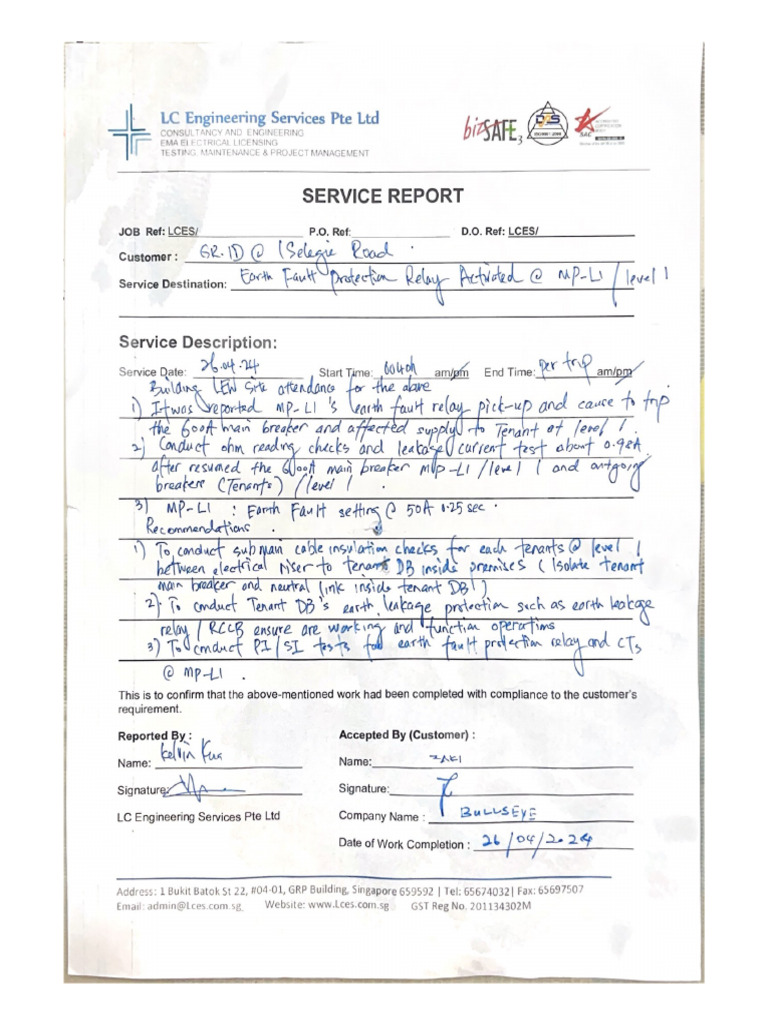 LC Engineering Services Pte Ltd
CONSULTANCY AND ENGINEERING
EMA ELECTRICAL LICENSING
TESTING, MAINTENANCE & PROJECT MANAGEMENT
bizSAFE3
SAC
SERVICE REPORT
JOB Ref: LCES/ P.O. Ref: D.O. Ref: LCES/
Customer : GR.ID @ 1 Selegie Road
Service Destination: Earth Fault Protection Relay Activated @ MP-L1 / level 1
Service Description:
Service Date: 26.04.24 Start Time: 0040h am/pm End Time: per trip am/pm
Building LEW site attendance for the above
1) It was reported MP-L1's earth fault relay pick-up and cause to trip
the 600A main breaker and affected supply to Tenant at level 1.
2) Conduct ohm reading checks and leakage current test about 0.98A
after resumed the 600A main breaker MP-L1 / level 1 and outgoing
breakers (Tenants) / level 1.
3) MP-L1 : Earth Fault setting @ 50A 0.25 sec.
Recommendations.
1) To conduct submain cable insulation checks for each tenants @ level 1
between electrical riser to tenants DB inside premises (Isolate tenant
main breaker and neutral link inside tenant DB!)
2) To conduct Tenant DB's earth leakage protection such as earth leakage
relay / RCCB ensure are working and function operations
3) To conduct PI/SI tests for earth fault protection relay and CTs
@ MP-L1.
This is to confirm that the above-mentioned work had been completed with compliance to the customer's
requirement.
Reported By : Accepted By (Customer) :
Name: Kelvin Kua Name: ZAKI
Signature: Signature:
LC Engineering Services Pte Ltd Company Name : BULLSEYE
Date of Work Completion : 26/04/2024
Address: 1 Bukit Batok St 22, #04-01, GRP Building, Singapore 659592 | Tel: 65674032| Fax: 65697507
Email: admin@Lces.com.sg Website: www.Lces.com.sg GST Reg No. 201134302M